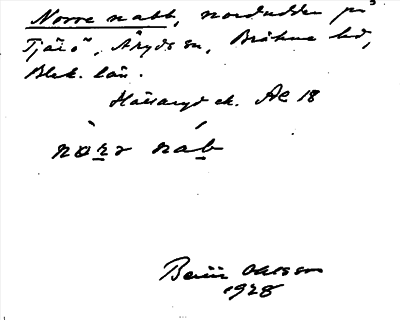 Norre nabb, nordudden på
Tjärö, Åryds sn, Bräkne hd,
Blek. län.
Hälsaryd ek. AE 18
nɷrə nab
Bertil Ohlsson
1928